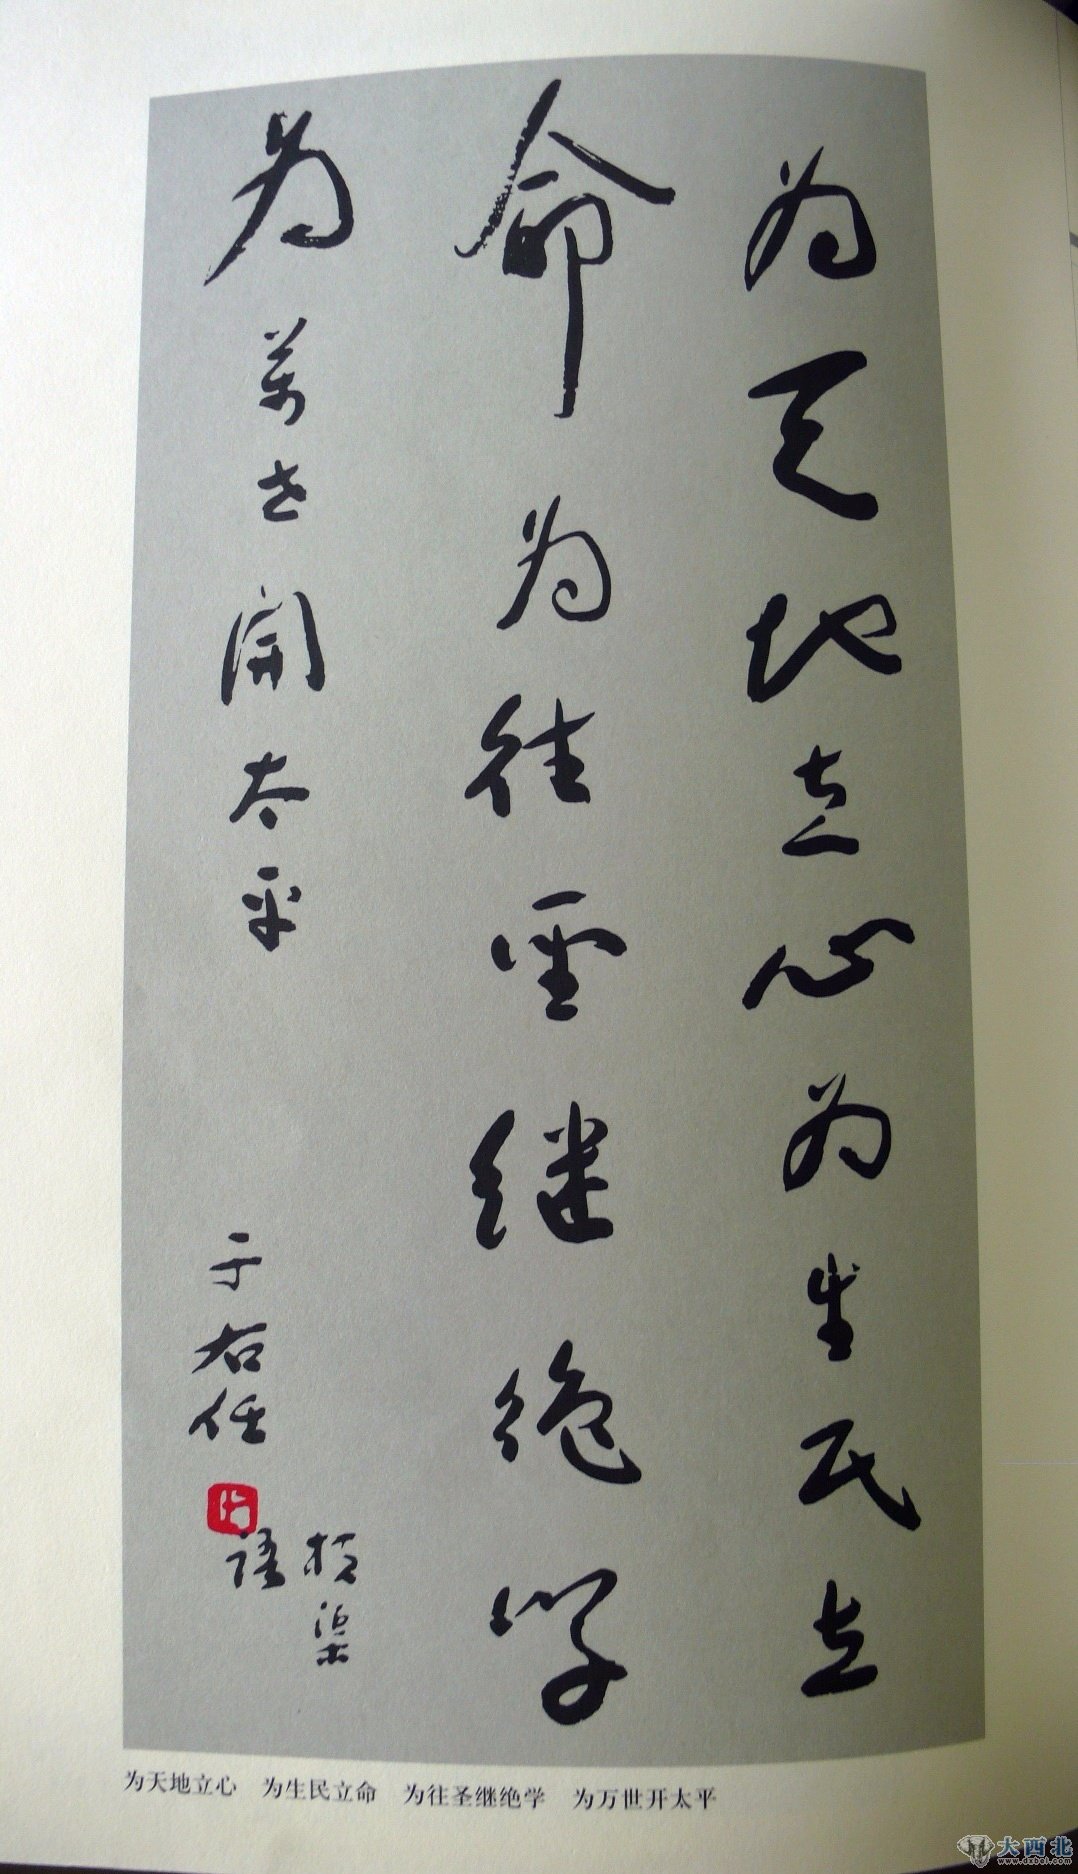 为天地立心为生民立
命为往圣继绝学
为萬世開太平
于右任
横渠
语
为天地立心 为生民立命 为往圣继绝学 为万世开太平
大西北
www.dxbei.com